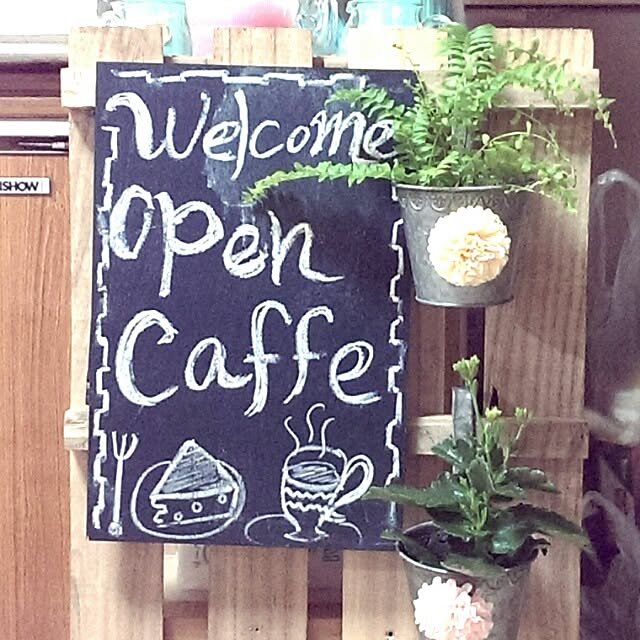 Welcome
open
Caffe
ISHOW